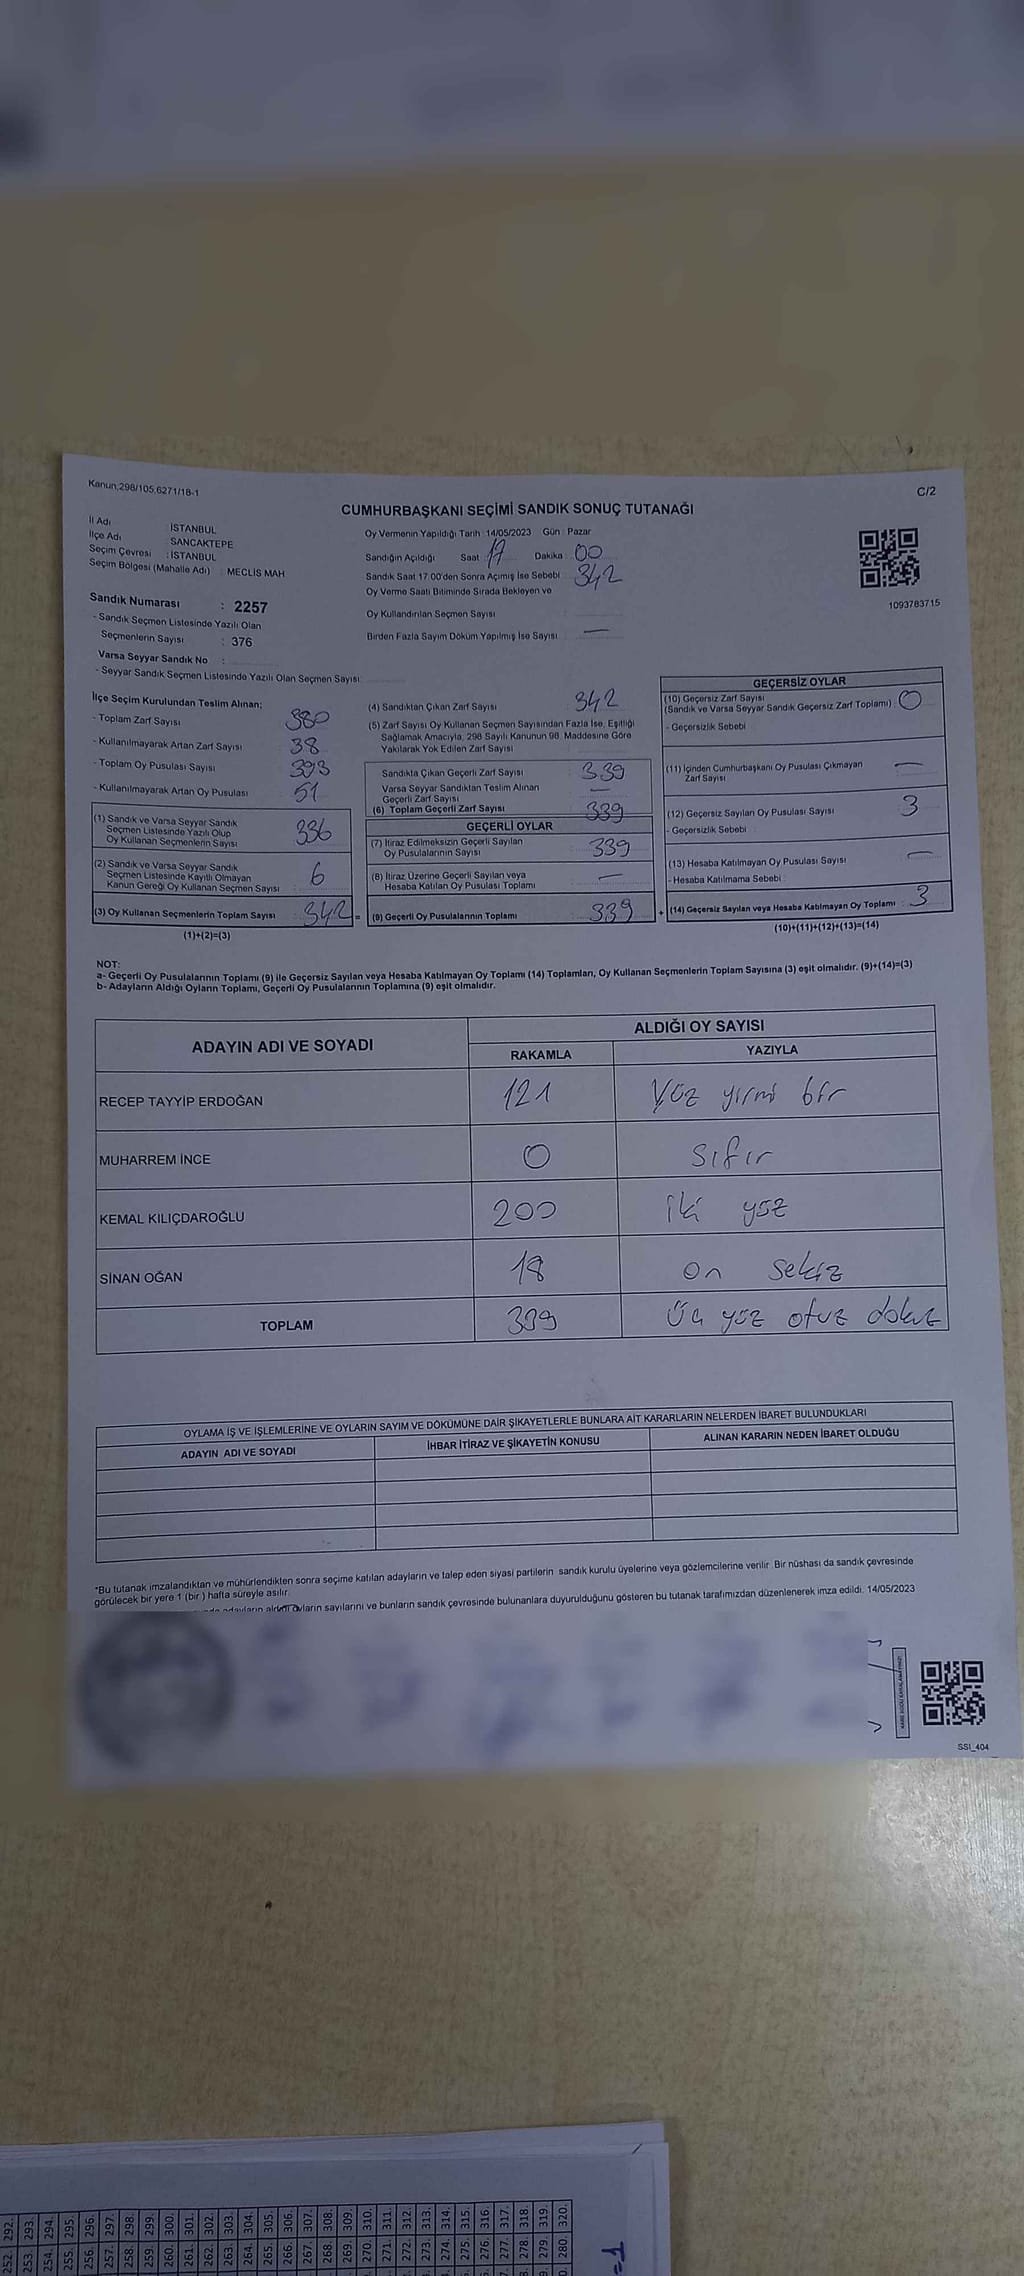 Kanun;298/105,6271/18-1
C/2
CUMHURBAŞKANI SEÇİMİ SANDIK SONUÇ TUTANAĞI
İl Adı : İSTANBUL
İlçe Adı : SANCAKTEPE
Seçim Çevresi : İSTANBUL
Seçim Bölgesi (Mahalle Adı) : MECLİS MAH
Sandık Numarası : 2257
- Sandık Seçmen Listesinde Yazılı Olan
Seçmenlerin Sayısı : 376
Varsa Seyyar Sandık No :
- Seyyar Sandık Seçmen Listesinde Yazılı Olan Seçmen Sayısı
Oy Vermenin Yapıldığı Tarih : 14/05/2023 Gün : Pazar
Sandığın Açıldığı Saat 17 Dakika : 00
Sandık Saat 17:00'den Sonra Açımış İse Sebebi : 342
Oy Verme Saati Bitiminde Sırada Bekleyen ve
Oy Kullandırılan Seçmen Sayısı
Birden Fazla Sayım Döküm Yapılmış İse Sayısı : —
1093783715
İlçe Seçim Kurulundan Teslim Alınan;
- Toplam Zarf Sayısı 380
- Kullanılmayarak Artan Zarf Sayısı 38
- Toplam Oy Pusulası Sayısı 393
- Kullanılmayarak Artan Oy Pusulası 51
(1) Sandık ve Varsa Seyyar Sandık
Seçmen Listesinde Yazılı Olup
Oy Kullanan Seçmenlerin Sayısı 336
(2) Sandık ve Varsa Seyyar Sandık
Seçmen Listesinde Kayıtlı Olmayan
Kanun Gereği Oy Kullanan Seçmen Sayısı 6
(3) Oy Kullanan Seçmenlerin Toplam Sayısı : 342 =
(1)+(2)=(3)
(4) Sandıktan Çıkan Zarf Sayısı 342
(5) Zarf Sayısı Oy Kullanan Seçmen Sayısından Fazla İse, Eşitliği
Sağlamak Amacıyla, 298 Sayılı Kanunun 98. Maddesine Göre
Yakılarak Yok Edilen Zarf Sayısı
Sandıkta Çıkan Geçerli Zarf Sayısı 339
Varsa Seyyar Sandıktan Teslim Alınan
Geçerli Zarf Sayısı —
(6) Toplam Geçerli Zarf Sayısı 339
GEÇERLİ OYLAR
(7) İtiraz Edilmeksizin Geçerli Sayılan
Oy Pusulalarının Sayısı 339
(8) İtiraz Üzerine Geçerli Sayılan veya
Hesaba Katılan Oy Pusulası Toplamı —
(9) Geçerli Oy Pusulalarının Toplamı 339 +
GEÇERSİZ OYLAR
(10) Geçersiz Zarf Sayısı
(Sandık ve Varsa Seyyar Sandık Geçersiz Zarf Toplamı) : 0
- Geçersizlik Sebebi
(11) İçinden Cumhurbaşkanı Oy Pusulası Çıkmayan
Zarf Sayısı —
(12) Geçersiz Sayılan Oy Pusulası Sayısı 3
- Geçersizlik Sebebi
(13) Hesaba Katılmayan Oy Pusulası Sayısı —
- Hesaba Katılmama Sebebi :
(14) Geçersiz Sayılan veya Hesaba Katılmayan Oy Toplamı : 3
(10)+(11)+(12)+(13)=(14)
NOT:
a- Geçerli Oy Pusulalarının Toplamı (9) ile Geçersiz Sayılan veya Hesaba Katılmayan Oy Toplamı (14) Toplamları, Oy Kullanan Seçmenlerin Toplam Sayısına (3) eşit olmalıdır. (9)+(14)=(3)
b- Adayların Aldığı Oyların Toplamı, Geçerli Oy Pusulalarının Toplamına (9) eşit olmalıdır.
ADAYIN ADI VE SOYADI
ALDIĞI OY SAYISI
RAKAMLA YAZIYLA
RECEP TAYYİP ERDOĞAN 121 Yüz yirmi bir
MUHARREM İNCE 0 sıfır
KEMAL KILIÇDAROĞLU 200 iki yüz
SİNAN OĞAN 18 on sekiz
TOPLAM 339 Üç yüz otuz dokuz
OYLAMA İŞ VE İŞLEMLERİNE VE OYLARIN SAYIM VE DÖKÜMÜNE DAİR ŞİKAYETLERLE BUNLARA AİT KARARLARIN NELERDEN İBARET BULUNDUKLARI
ADAYIN ADI VE SOYADI İHBAR İTİRAZ VE ŞİKAYETİN KONUSU ALINAN KARARIN NEDEN İBARET OLDUĞU
*Bu tutanak imzalandıktan ve mühürlendikten sonra seçime katılan adayların ve talep eden siyasi partilerin sandık kurulu üyelerine veya gözlemcilerine verilir. Bir nüshası da sandık çevresinde
görülecek bir yere 1 (bir ) hafta süreyle asılır.
adayların aldığı oyların sayılarını ve bunların sandık çevresinde bulunanlara duyurulduğunu gösteren bu tutanak tarafımızdan düzenlenerek imza edildi. 14/05/2023
SSI_404
292. 293. 294. 295. 296. 297. 298. 299. 300. 301. 302. 303. 304. 305. 306. 307. 308. 309. 310. 311. 312. 313. 314. 315. 316. 317. 318. 319. 320.
252. 253. 254. 255. 256. 257. 258. 259. 260. 261. 262. 263. 264. 265. 266. 267. 268. 269. 270. 271. 272. 273. 274. 275. 276. 277. 278. 279. 280.